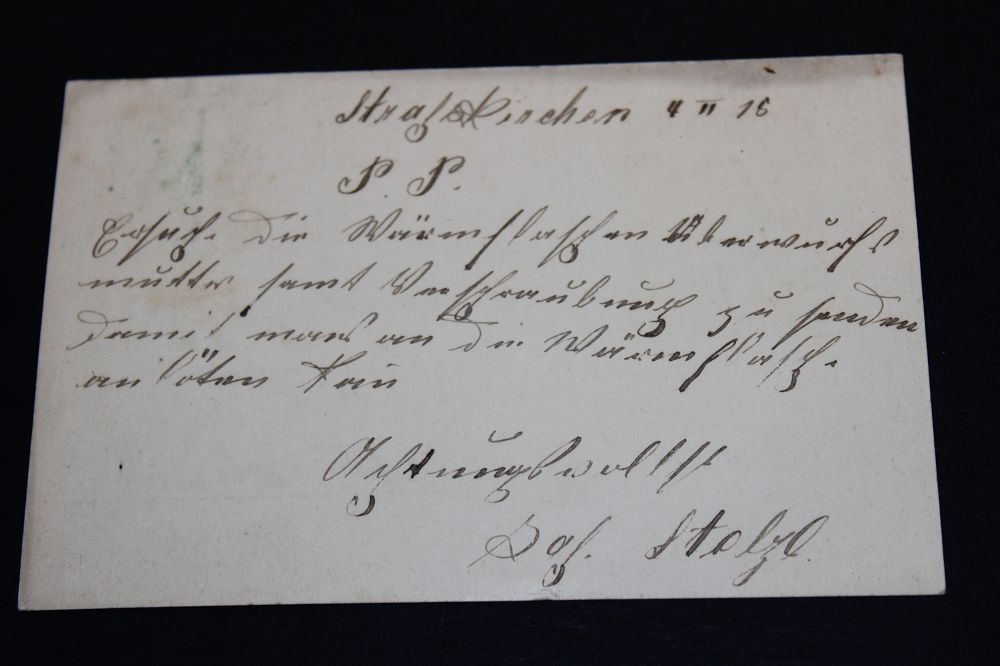 Straßkirchen 4 II 18
P. P.
Ersuche die Wärmflaschen Überwurfs
mutter samt Verschraubung zu senden
damit man es an die Wärmflasche
anlöten kan
Achtungsvollst
Joh. Stelzl.